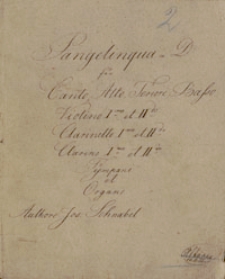 2
Pangelingua in D
für
Canto, Alto, Tenore, Basso
Violino Imo et IIdo
Clarinetto Imo et IIdo
Clarino Imo et IIdo
Tympano
et
Organo
Authore Jos. Schnabel